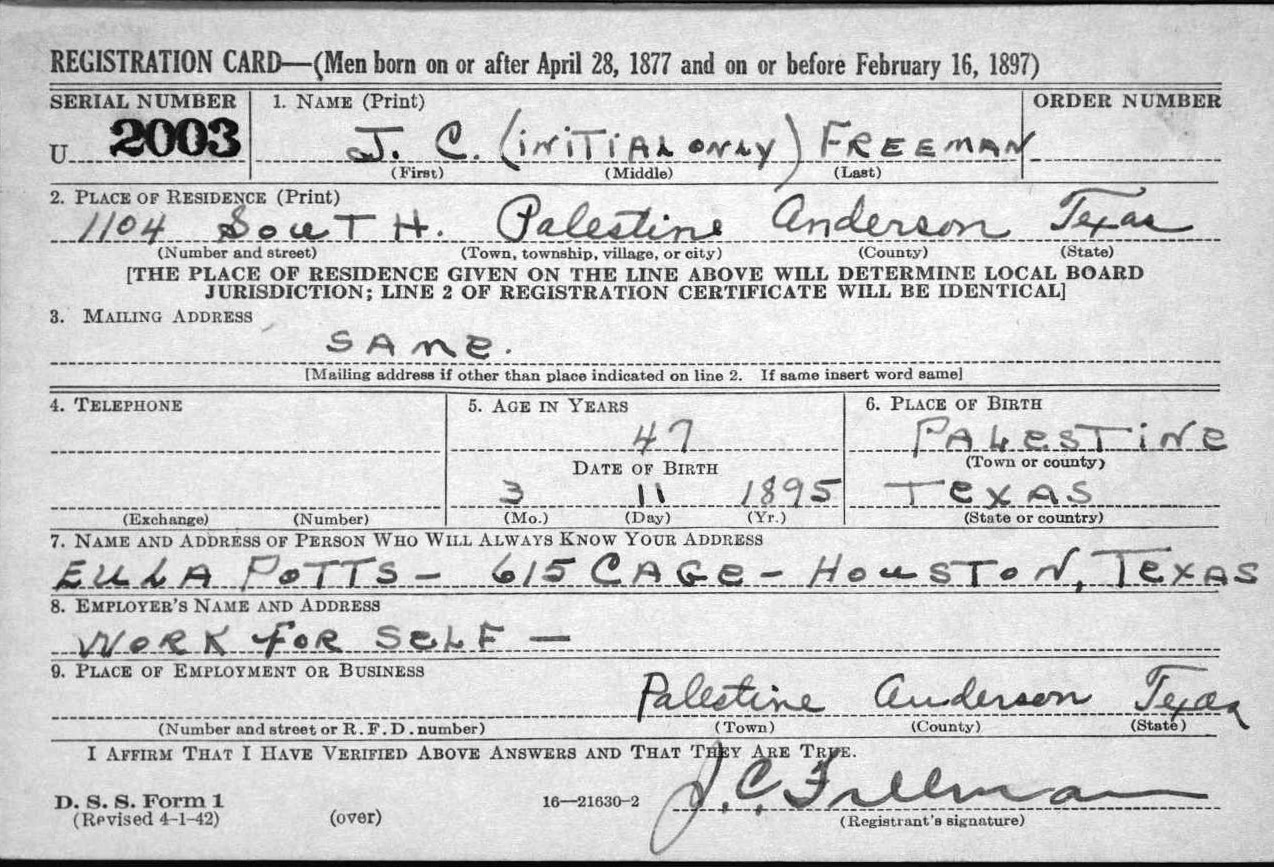 REGISTRATION CARD—(Men born on or after April 28, 1877 and on or before February 16, 1897)
SERIAL NUMBER 1. NAME (Print) ORDER NUMBER
U 2003 J. C. (INITIAL ONLY) FREEMAN
(First) (Middle) (Last)
2. PLACE OF RESIDENCE (Print)
1104 SOUTH. Palestine Anderson Texas
(Number and street) (Town, township, village, or city) (County) (State)
[THE PLACE OF RESIDENCE GIVEN ON THE LINE ABOVE WILL DETERMINE LOCAL BOARD
JURISDICTION; LINE 2 OF REGISTRATION CERTIFICATE WILL BE IDENTICAL]
3. MAILING ADDRESS
SAME.
[Mailing address if other than place indicated on line 2. If same insert word same]
4. TELEPHONE 5. AGE IN YEARS 6. PLACE OF BIRTH
47 PALESTINE
DATE OF BIRTH (Town or county)
3 11 1895 TEXAS
(Exchange) (Number) (Mo.) (Day) (Yr.) (State or country)
7. NAME AND ADDRESS OF PERSON WHO WILL ALWAYS KNOW YOUR ADDRESS
EULA POTTS - 615 CAGE - HOUSTON, TEXAS
8. EMPLOYER'S NAME AND ADDRESS
WORK FOR SELF —
9. PLACE OF EMPLOYMENT OR BUSINESS
Palestine Anderson Texas
(Number and street or R. F. D. number) (Town) (County) (State)
I AFFIRM THAT I HAVE VERIFIED ABOVE ANSWERS AND THAT THEY ARE TRUE.
J. C. Freeman
D. S. S. Form 1 16—21630-2
(Revised 4-1-42) (over) (Registrant's signature)